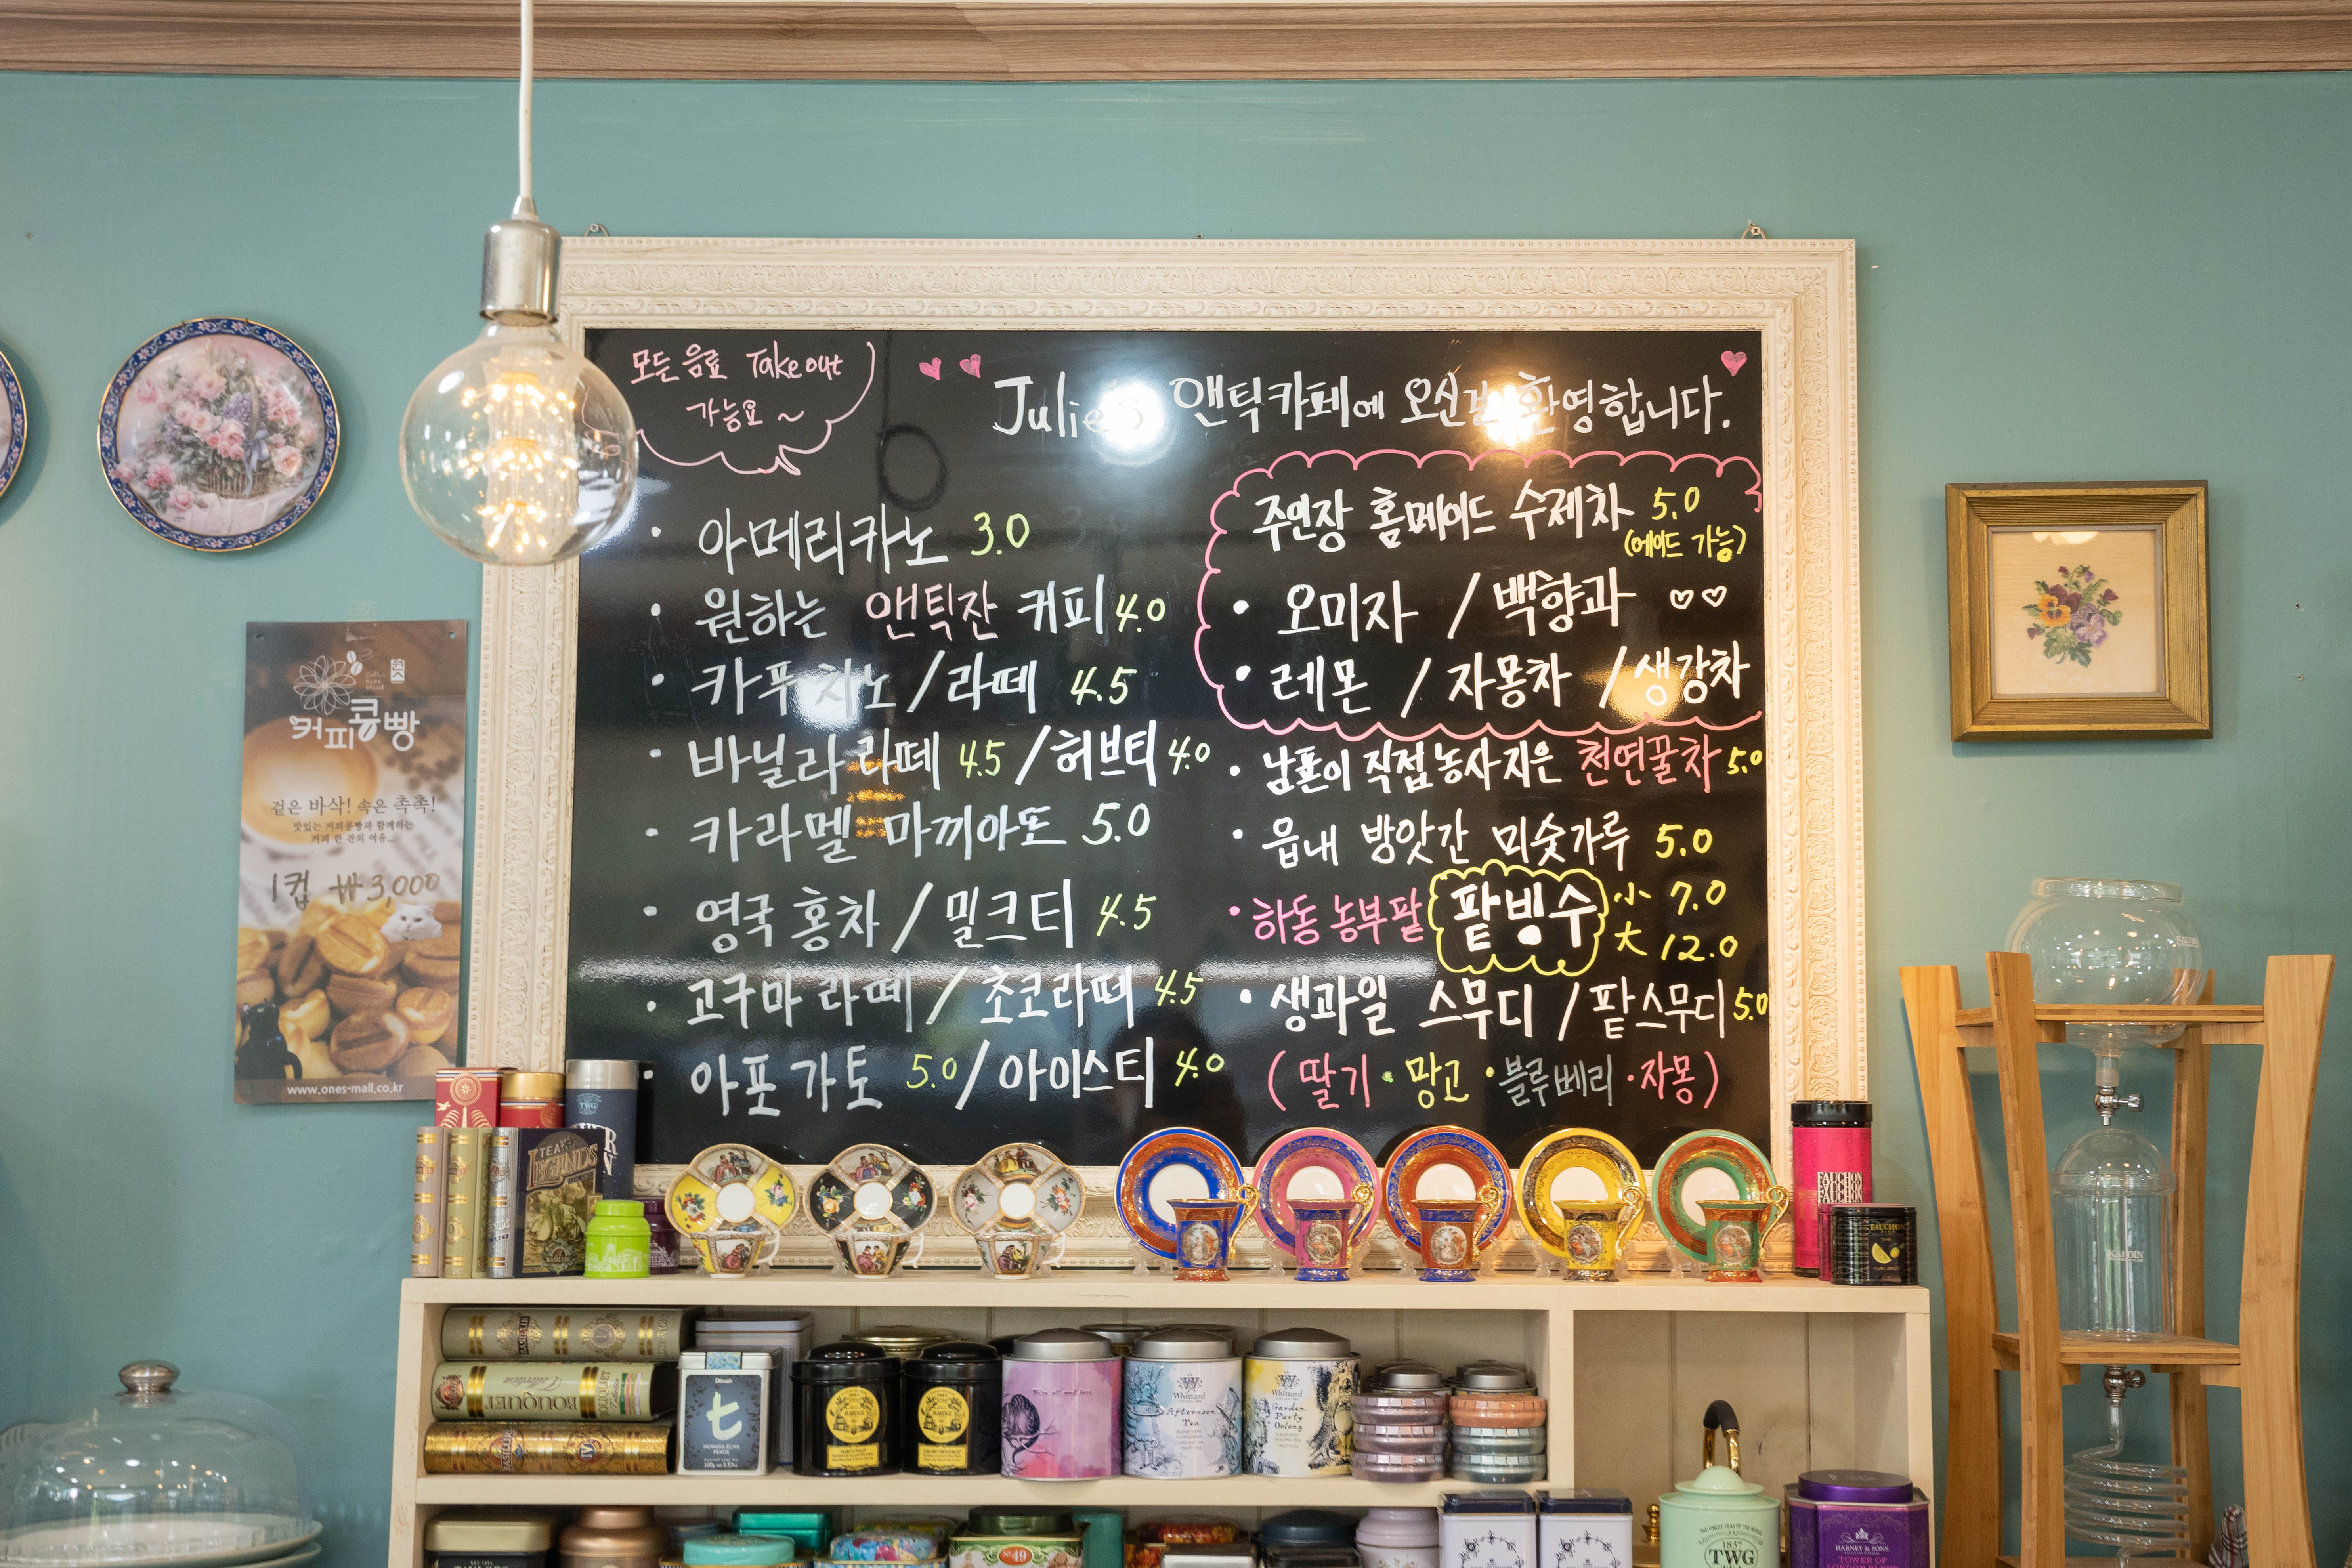 모든 음료 Take out
가능요~
Julie's 앤틱카페에 오신걸 환영합니다.
· 아메리카노 3.0
· 원하는 앤틱잔 커피 4.0
· 카푸치노/라떼 4.5
· 바닐라 라떼 4.5 /허브티 4.0
· 카라멜 마끼아또 5.0
· 영국 홍차 / 밀크티 4.5
· 고구마 라떼 / 초코라떼 4.5
· 아포가토 5.0 / 아이스티 4.0
주인장 홈메이드 수제차 5.0
(에이드 가능)
· 오미자 / 백향과 ♡♡
· 레몬 / 자몽차 / 생강차
· 남편이 직접 농사지은 천연꿀차 5.0
· 읍내 방앗간 미숫가루 5.0
· 하동 농부팥 팥빙수 小 7.0
大 12.0
· 생과일 스무디 / 팥스무디 5.0
(딸기·망고·블루베리·자몽)
커피콩빵
겉은 바삭! 속은 촉촉!
맛있는 커피콩빵과 함께하는
커피 한 잔의 여유...
1컵 ₩3,000
www.ones-mall.co.kr
TWG
TEA
LEGENDS
BASILUR
FAUCHON
FAUCHON
FAUCHON
FAUCHON
BASILUR
BOUQUET
BASILUR
Dilmah
t
NUWARA ELIYA
PEKOE
Whittard
Afternoon
Tea
Whittard
Garden
Party
Oolong
KALDIN
No 49
1837
TWG
HARNEY & SONS
TOWER OF